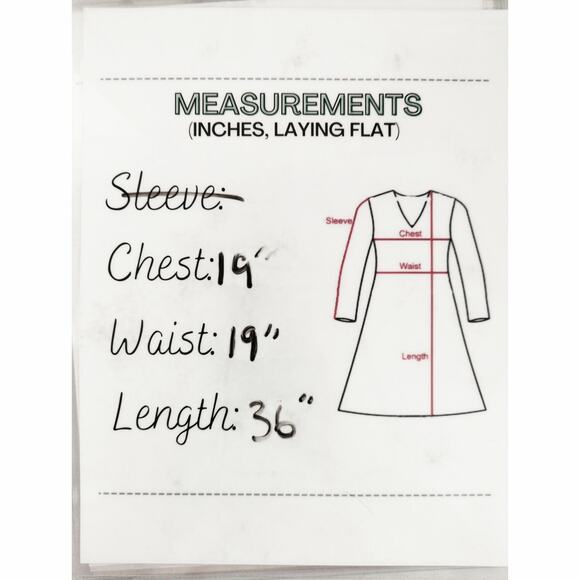 MEASUREMENTS
(INCHES, LAYING FLAT)
Sleeve:
Chest: 19"
Waist: 19"
Length: 36"
Sleeve
Chest
Waist
Length